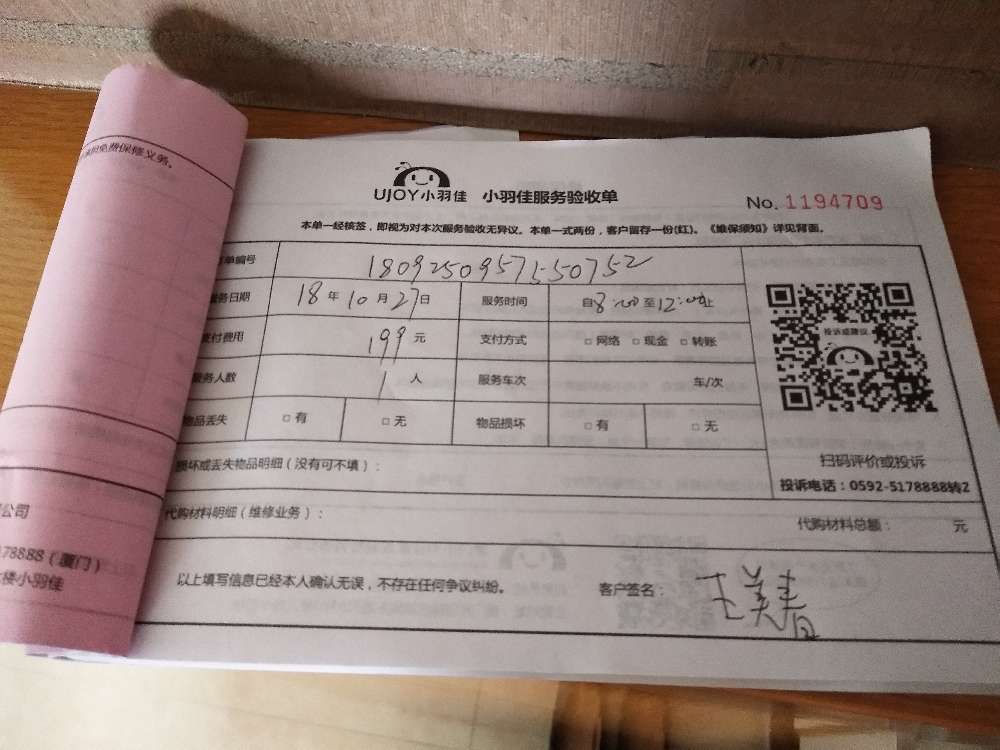 担免费保修义务。
UJOY小羽佳 小羽佳服务验收单
No. 1194709
本单一经核签，即视为对本次服务验收无异议。本单一式两份，客户留存一份(红)。《维保须知》详见背面。
单编号 180925095715 50752
服务日期 18年10月27日 服务时间 自8:00至12:00止
支付费用 199元 支付方式 □ 网络 □ 现金 □ 转账
服务人数 1人 服务车次 车/次
物品丢失 □ 有 □ 无 物品损坏 □ 有 □ 无
投诉或建议
扫码评价或投诉
投诉电话：0592-5178888转2
损坏或丢失物品明细（没有可不填）：
代购材料明细（维修业务）： 代购材料总额： 元
公司
178888（厦门）
楼小羽佳
以上填写信息已经本人确认无误，不存在任何争议纠纷。 客户签名： 王美青